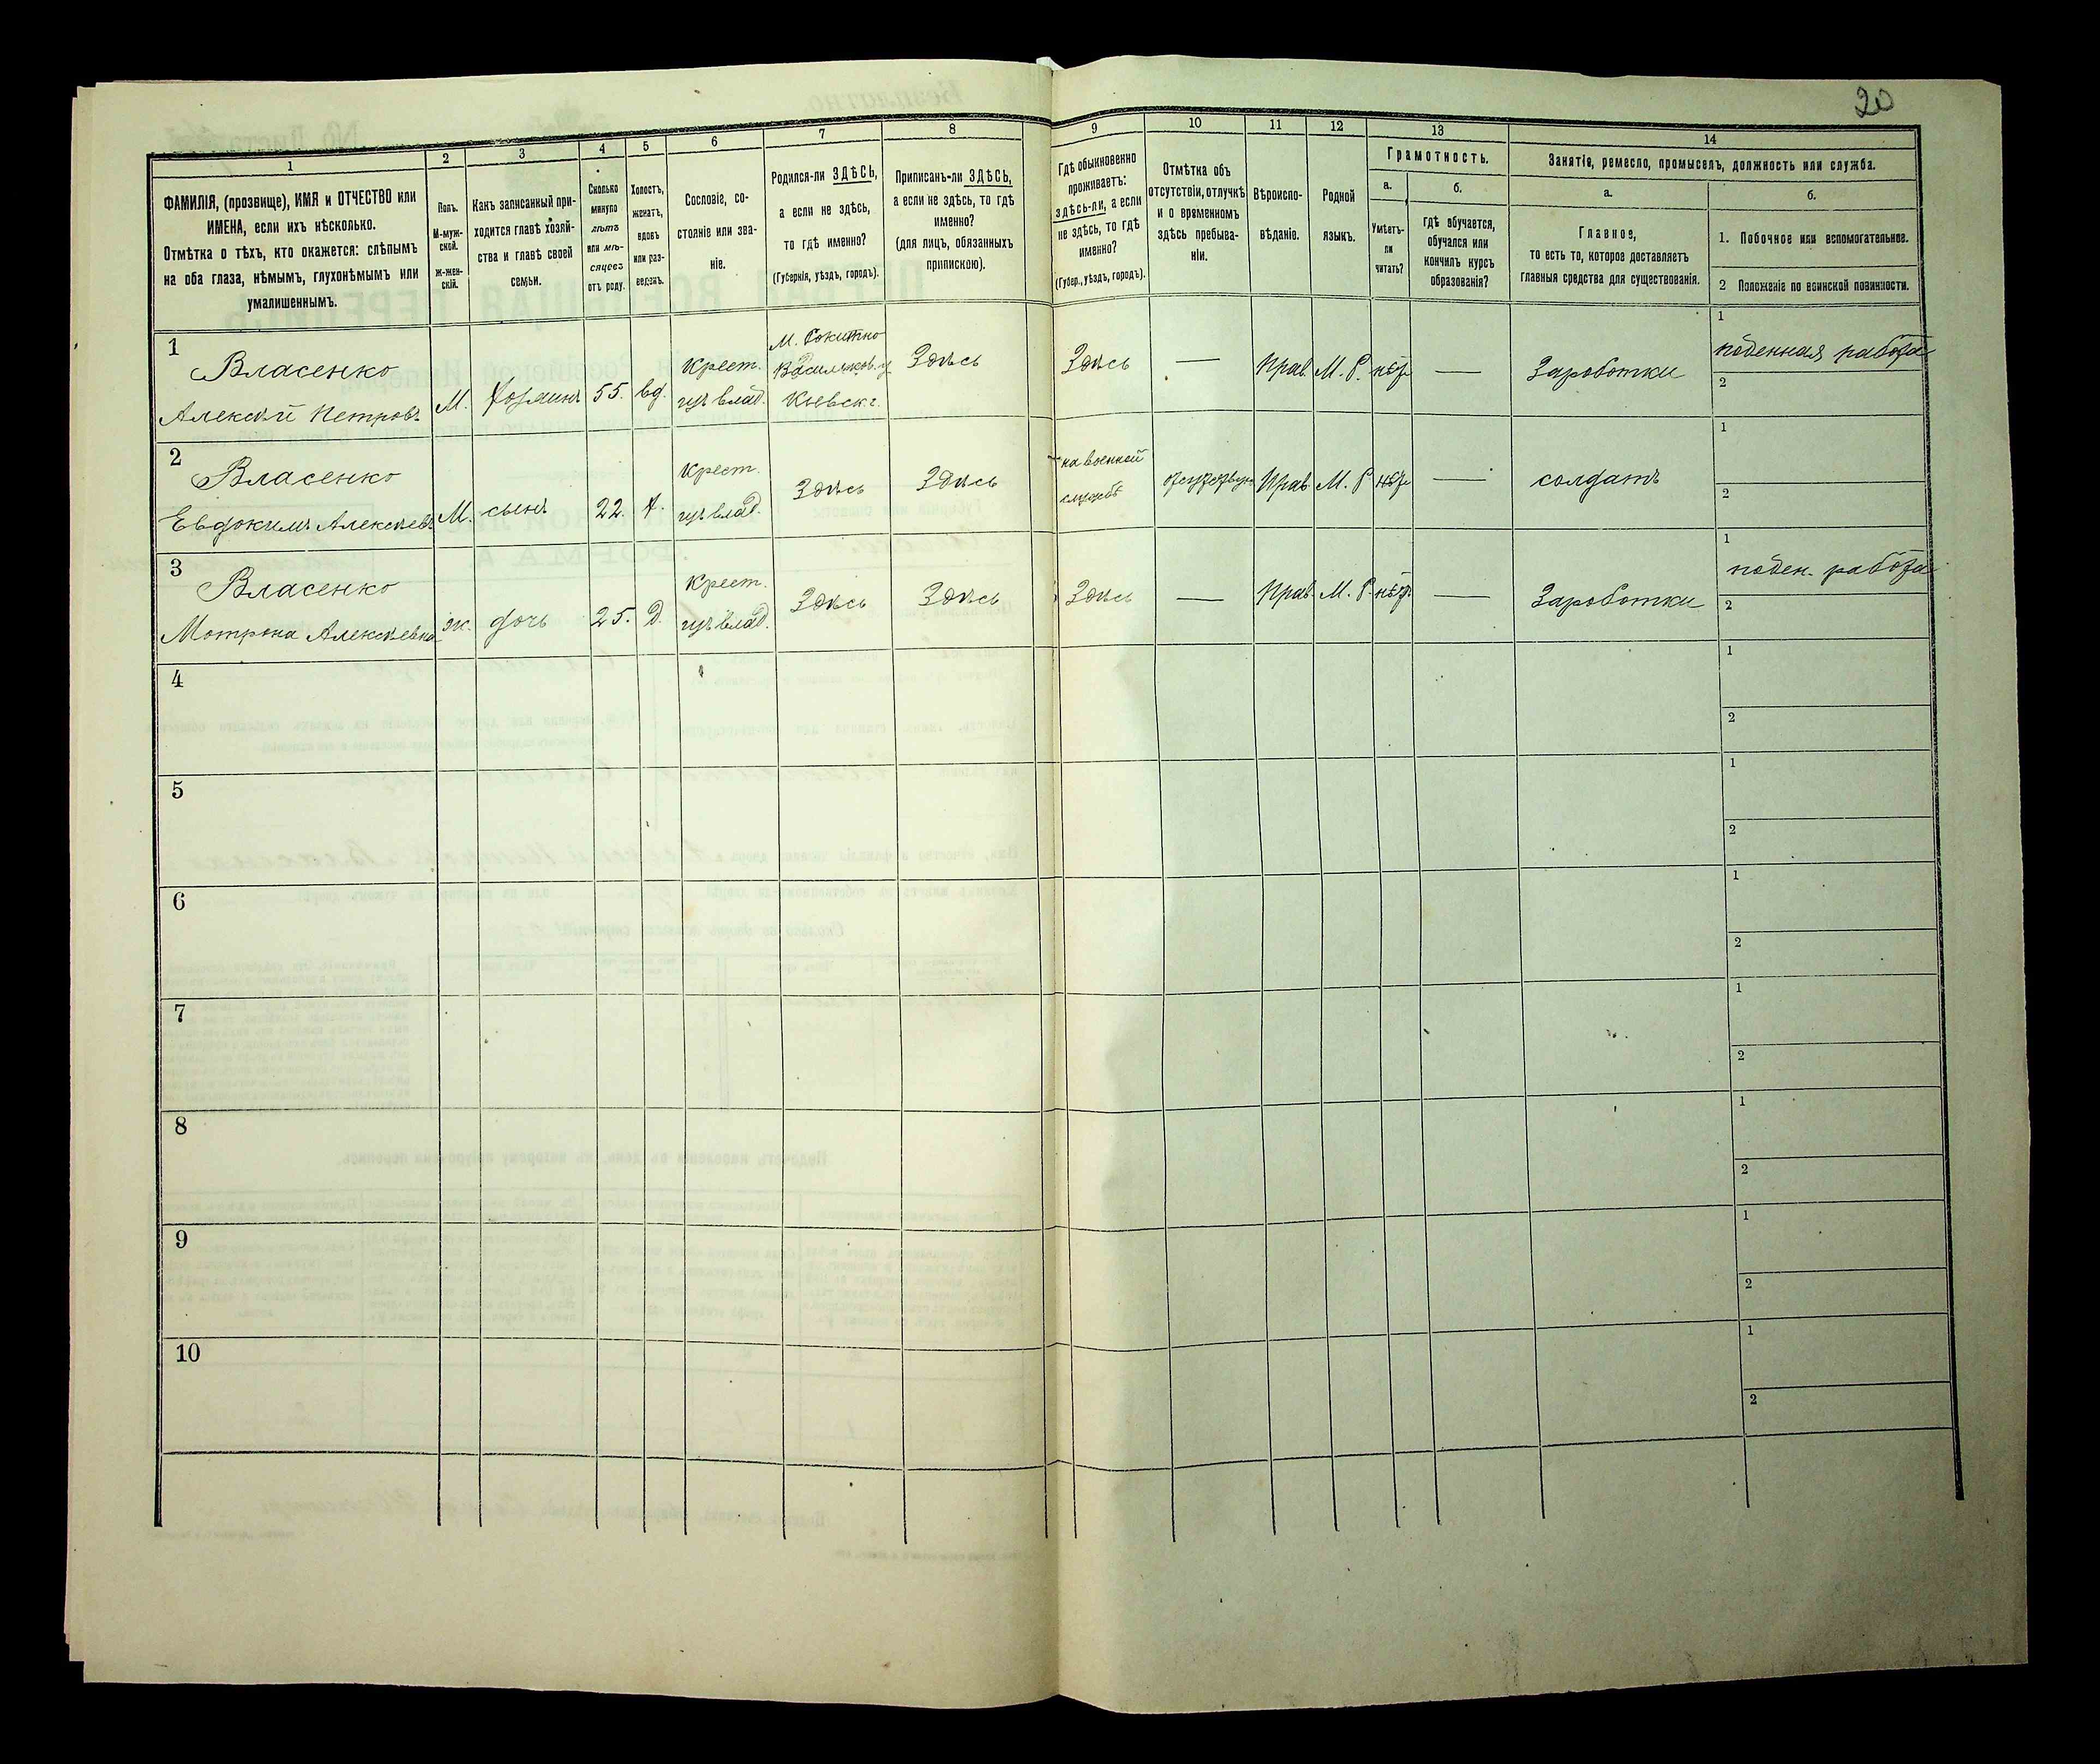 20
1
2
3
4
5
6
7
8
9
10
11
12
13
14
ФАМИЛІЯ, (прозвище), ИМЯ и ОТЧЕСТВО или
ИМЕНА, если ихъ нѣсколько.
Отмѣтка о тѣхъ, кто окажется: слѣпымъ
на оба глаза, нѣмымъ, глухонѣмымъ или
умалишеннымъ.
Полъ.
М-муж-
ской.
Ж-жен-
скій.
Какъ записанный при-
ходится главѣ хозяй-
ства и главѣ своей
семьи.
Сколько
минуло
лѣтъ
или мѣ-
сяцевъ
отъ роду.
Холостъ,
женатъ,
вдовъ
или раз-
веденъ.
Сословіе, со-
стояніе или зва-
ніе.
Родился-ли ЗДѢСЬ,
а если не здѣсь,
то гдѣ именно?
(Губернія, уѣздъ, городъ).
Приписанъ-ли ЗДѢСЬ,
а если не здѣсь, то гдѣ
именно?
(для лицъ, обязанныхъ
припискою).
Гдѣ обыкновенно
проживаетъ:
здѣсь-ли, а если
не здѣсь, то гдѣ
именно?
(Губер., уѣздъ, городъ).
Отмѣтка объ
отсутствіи, отлучкѣ
и о временномъ
здѣсь пребыва-
ніи.
Вѣроиспо-
вѣданіе.
Родной
языкъ.
Грамотность.
а.
Умѣетъ-
ли
читать?
б.
гдѣ обучается,
обучался или
кончилъ курсъ
образованія?
Занятіе, ремесло, промыселъ, должность или служба.
а.
Главное,
то есть то, которое доставляетъ
главныя средства для существованія.
б.
1. Побочное или вспомогательное.
2 Положеніе по воинской повинности.
1
Власенко
Алексѣй Петровъ
М.
хозяинъ
55.
вд.
Крест.
изъ влад.
М. Рокитно
Васильков. у
Кіевск. г.
Здѣсь
Здѣсь
—
Прав.
М. Р.
нѣтъ
—
Заработки
1
поденная работа
2
2
Власенко
Евдокимъ Алексѣевъ
М.
сынъ
22.
Х.
Крест.
изъ влад.
Здѣсь
Здѣсь
на военной
службѣ
отсутствует
Прав.
М. Р.
нѣтъ
—
солдатъ
1
2
3
Власенко
Мотрона Алексѣевна
ж.
дочь
25.
Д.
Крест.
изъ влад.
Здѣсь
Здѣсь
Здѣсь
—
Прав.
М. Р.
нѣтъ
—
Заработки
1
поден. работа
2
4
1
2
5
1
2
6
1
2
7
1
2
8
1
2
9
1
2
10
1
2